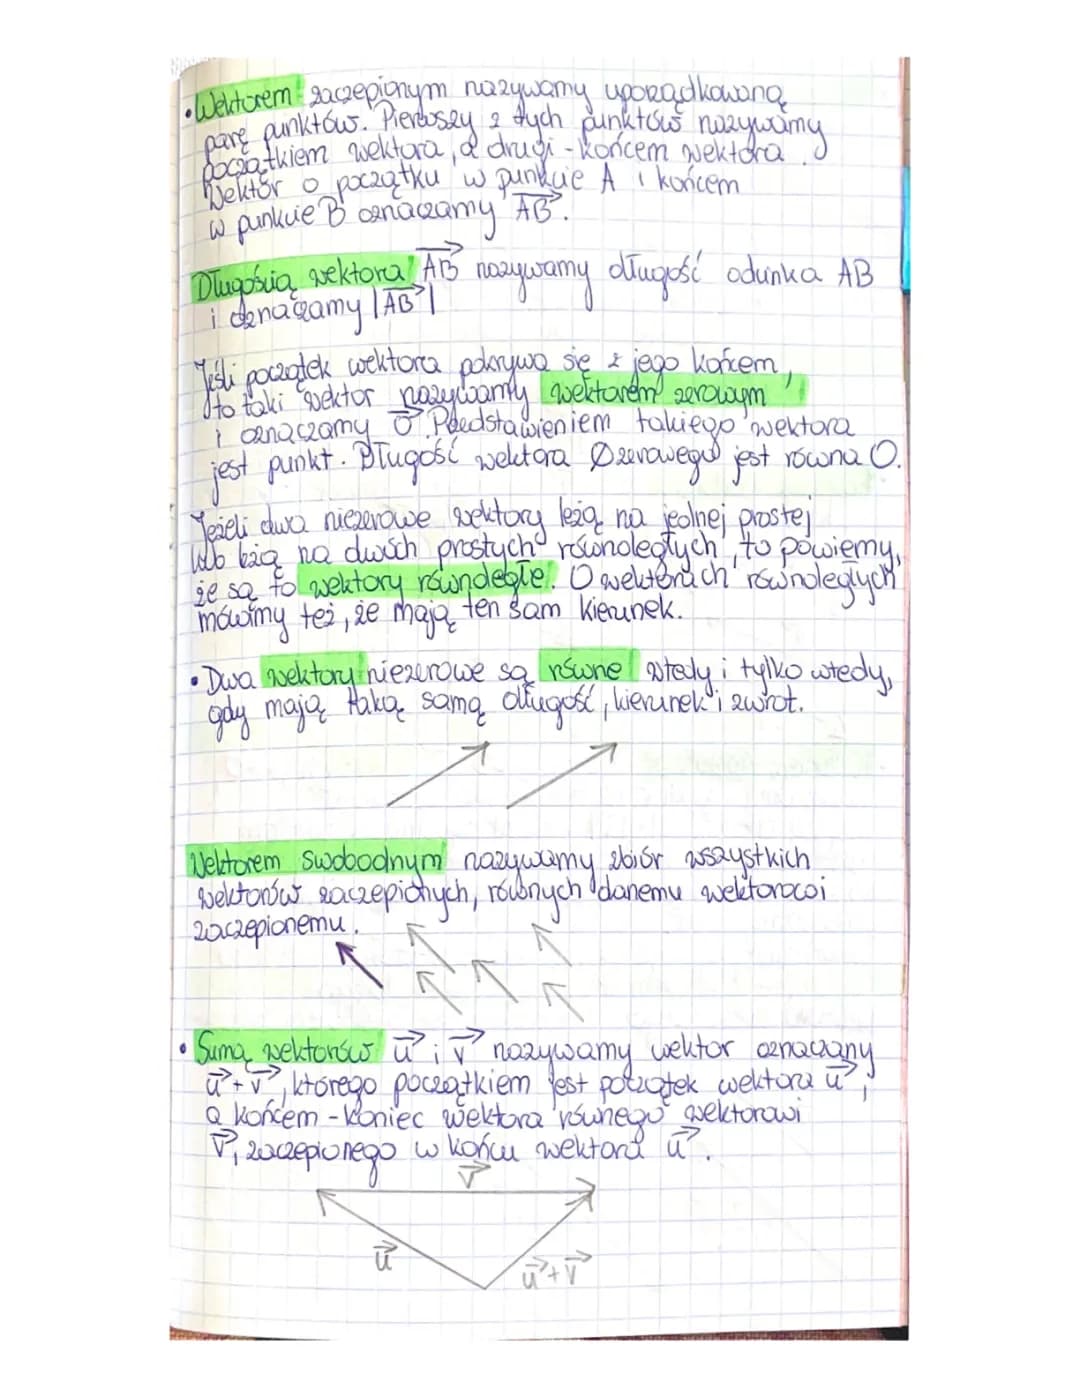 • Wektorem zaczepionym nazywamy uporządkowaną
parę punktów. Pierwszy z tych punktów nazywamy
początkiem wektora, a drugi - końcem wektora.
Wektor o początku w punkcie A i końcem
w punkcie B oznaczamy \overrightarrow{AB}.
Długością wektora \overrightarrow{AB} nazywamy długość odcinka AB
i oznaczamy |\overrightarrow{AB}|
Jeśli początek wektora pokrywa się z jego końcem,
to taki wektor nazywamy wektorem zerowym
i oznaczamy \vec{0}. Przedstawieniem takiego wektora
jest punkt. Długość wektora zerowego jest równa 0.
Jeżeli dwa niezerowe wektory leżą na jednej prostej
lub leżą na dwóch prostych równoległych, to powiemy,
że są to wektory równoległe. O wektorach równoległych
mówimy też, że mają ten sam kierunek.
• Dwa wektory niezerowe są równe wtedy i tylko wtedy,
gdy mają taką samą długość, kierunek i zwrot.
Wektorem swobodnym nazywamy zbiór wszystkich
wektorów zaczepionych, równych danemu wektorowi
zaczepionemu.
• Sumą wektorów \vec{u} i \vec{v} nazywamy wektor oznaczany
\vec{u}+\vec{v}, którego początkiem jest początek wektora \vec{u},
a końcem - koniec wektora równego wektorowi
\vec{v}, zaczepionego w końcu wektora \vec{u}.
\vec{v}
\vec{u}
\vec{u}+\vec{v}